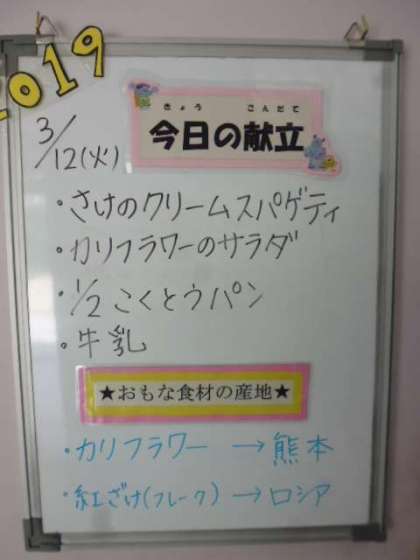 2019
3/12(火)
きょう こんだて
今日の献立
・さけのクリームスパゲティ
・カリフラワーのサラダ
・1/2 こくとうパン
・牛乳
★おもな食材の産地★
・カリフラワー → 熊本
・紅ざけ(フレーク) → ロシア